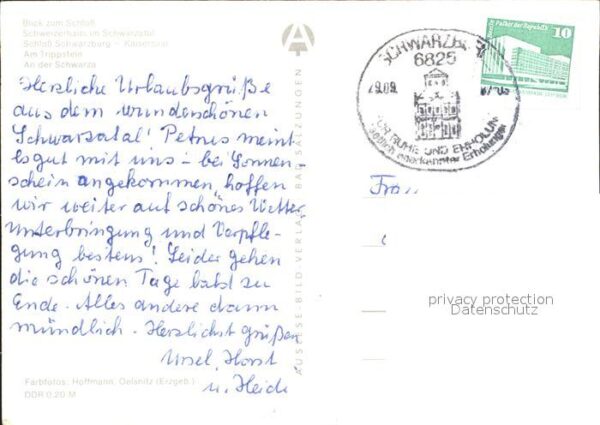 Blick zum Schloß
Schweizerhaus im Schwarzatal
Schloß Schwarzburg - Kaisersaal
Am Trippstein
An der Schwarza
Herzliche Urlaubsgrüße
aus dem wunderschönen
Schwarzatal! Petrus meint
es gut mit uns - bei Sonnen-
schein angekommen, hoffen
wir weiter auf schönes Wetter,
Unterbringung und Verpfle-
gung bestens! Leider gehen
die schönen Tage bald zu
Ende. Alles andere dann
mündlich. Herzlichst grüßen
Ursel, Horst
u. Heidi
Farbfotos: Hoffmann, Oelsnitz (Erzgeb.)
DDR 0,20 M
AUSLESE-BILD-VERLAG BAD SALZUNGEN
SCHWARZB
6825
29.09.
RUHE UND ERHOLUN
staatlich anerkannter Erholungs
Palast der Republik
10
DDR
Frau
privacy protection
Datenschutz